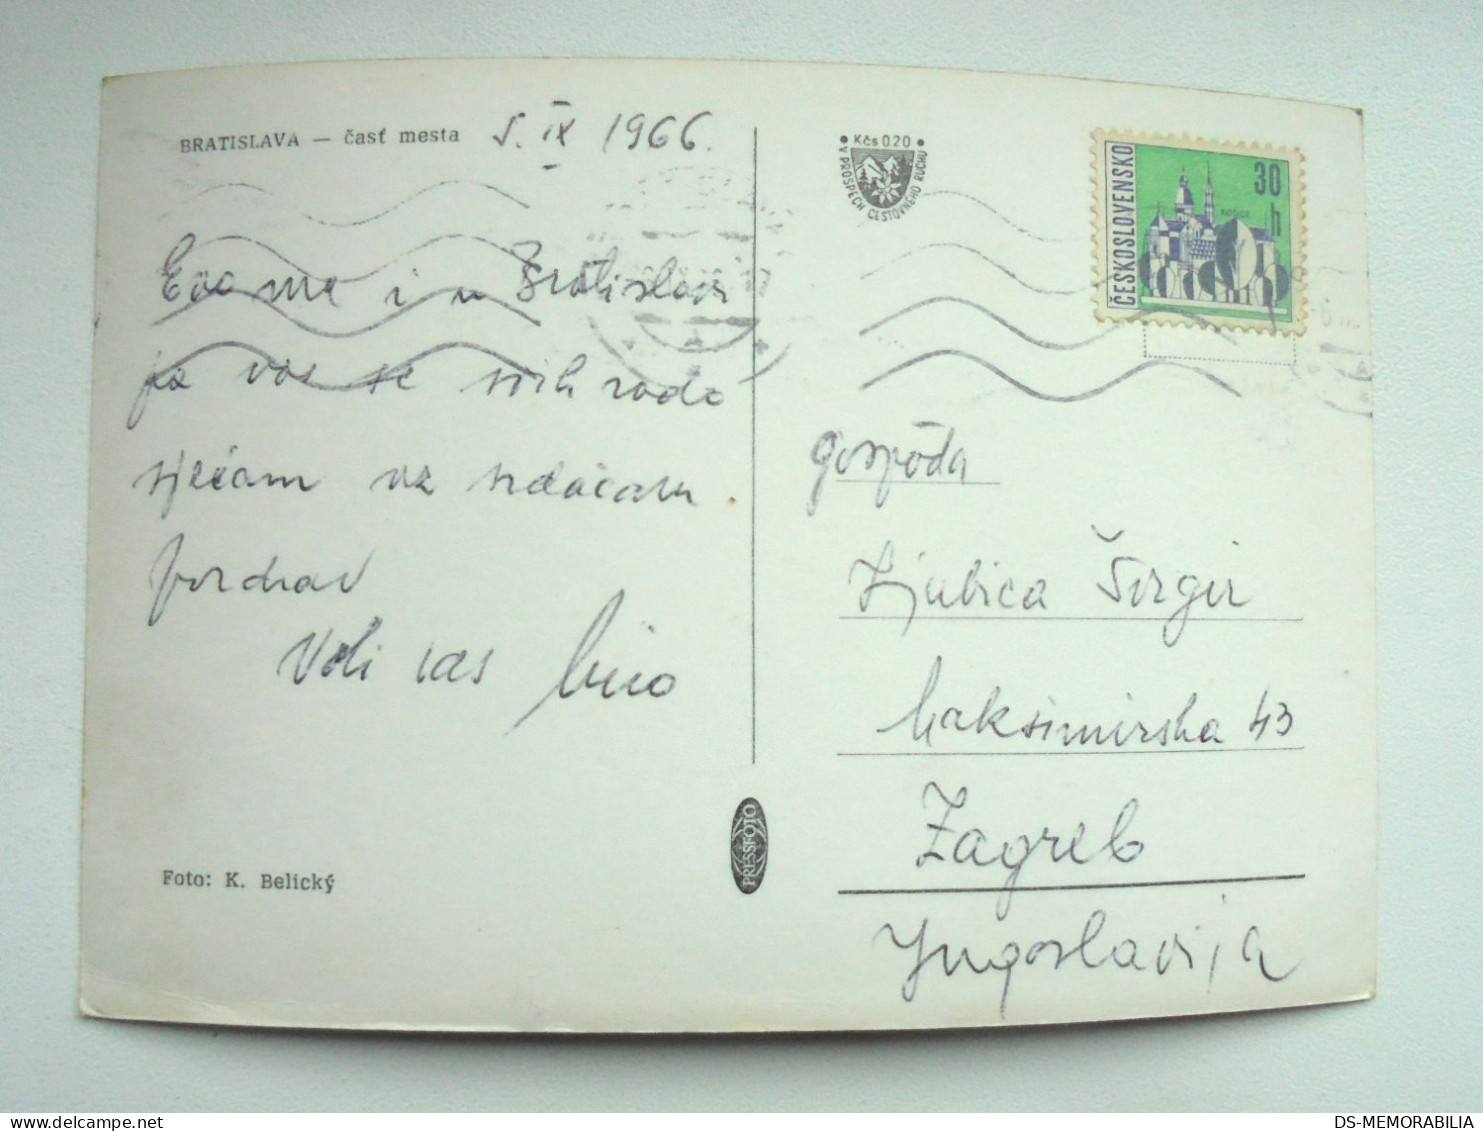 BRATISLAVA — časť mesta 5. IX 1966.
Evo me i u Bratislavi
pa vas se svih rado
sjećam uz srdačan
pozdrav
Voli vas
Foto: K. Belický
PRESSFOTO
• Kčs 0.20 •
V PROSPĚCH CESTOVNÉHO RUCHU
ČESKOSLOVENSKO
30 h
KOŠICE
gospođa
Ljubica Širgir
Maksimirska 43
Zagreb
Jugoslavija
DS-MEMORABILIA